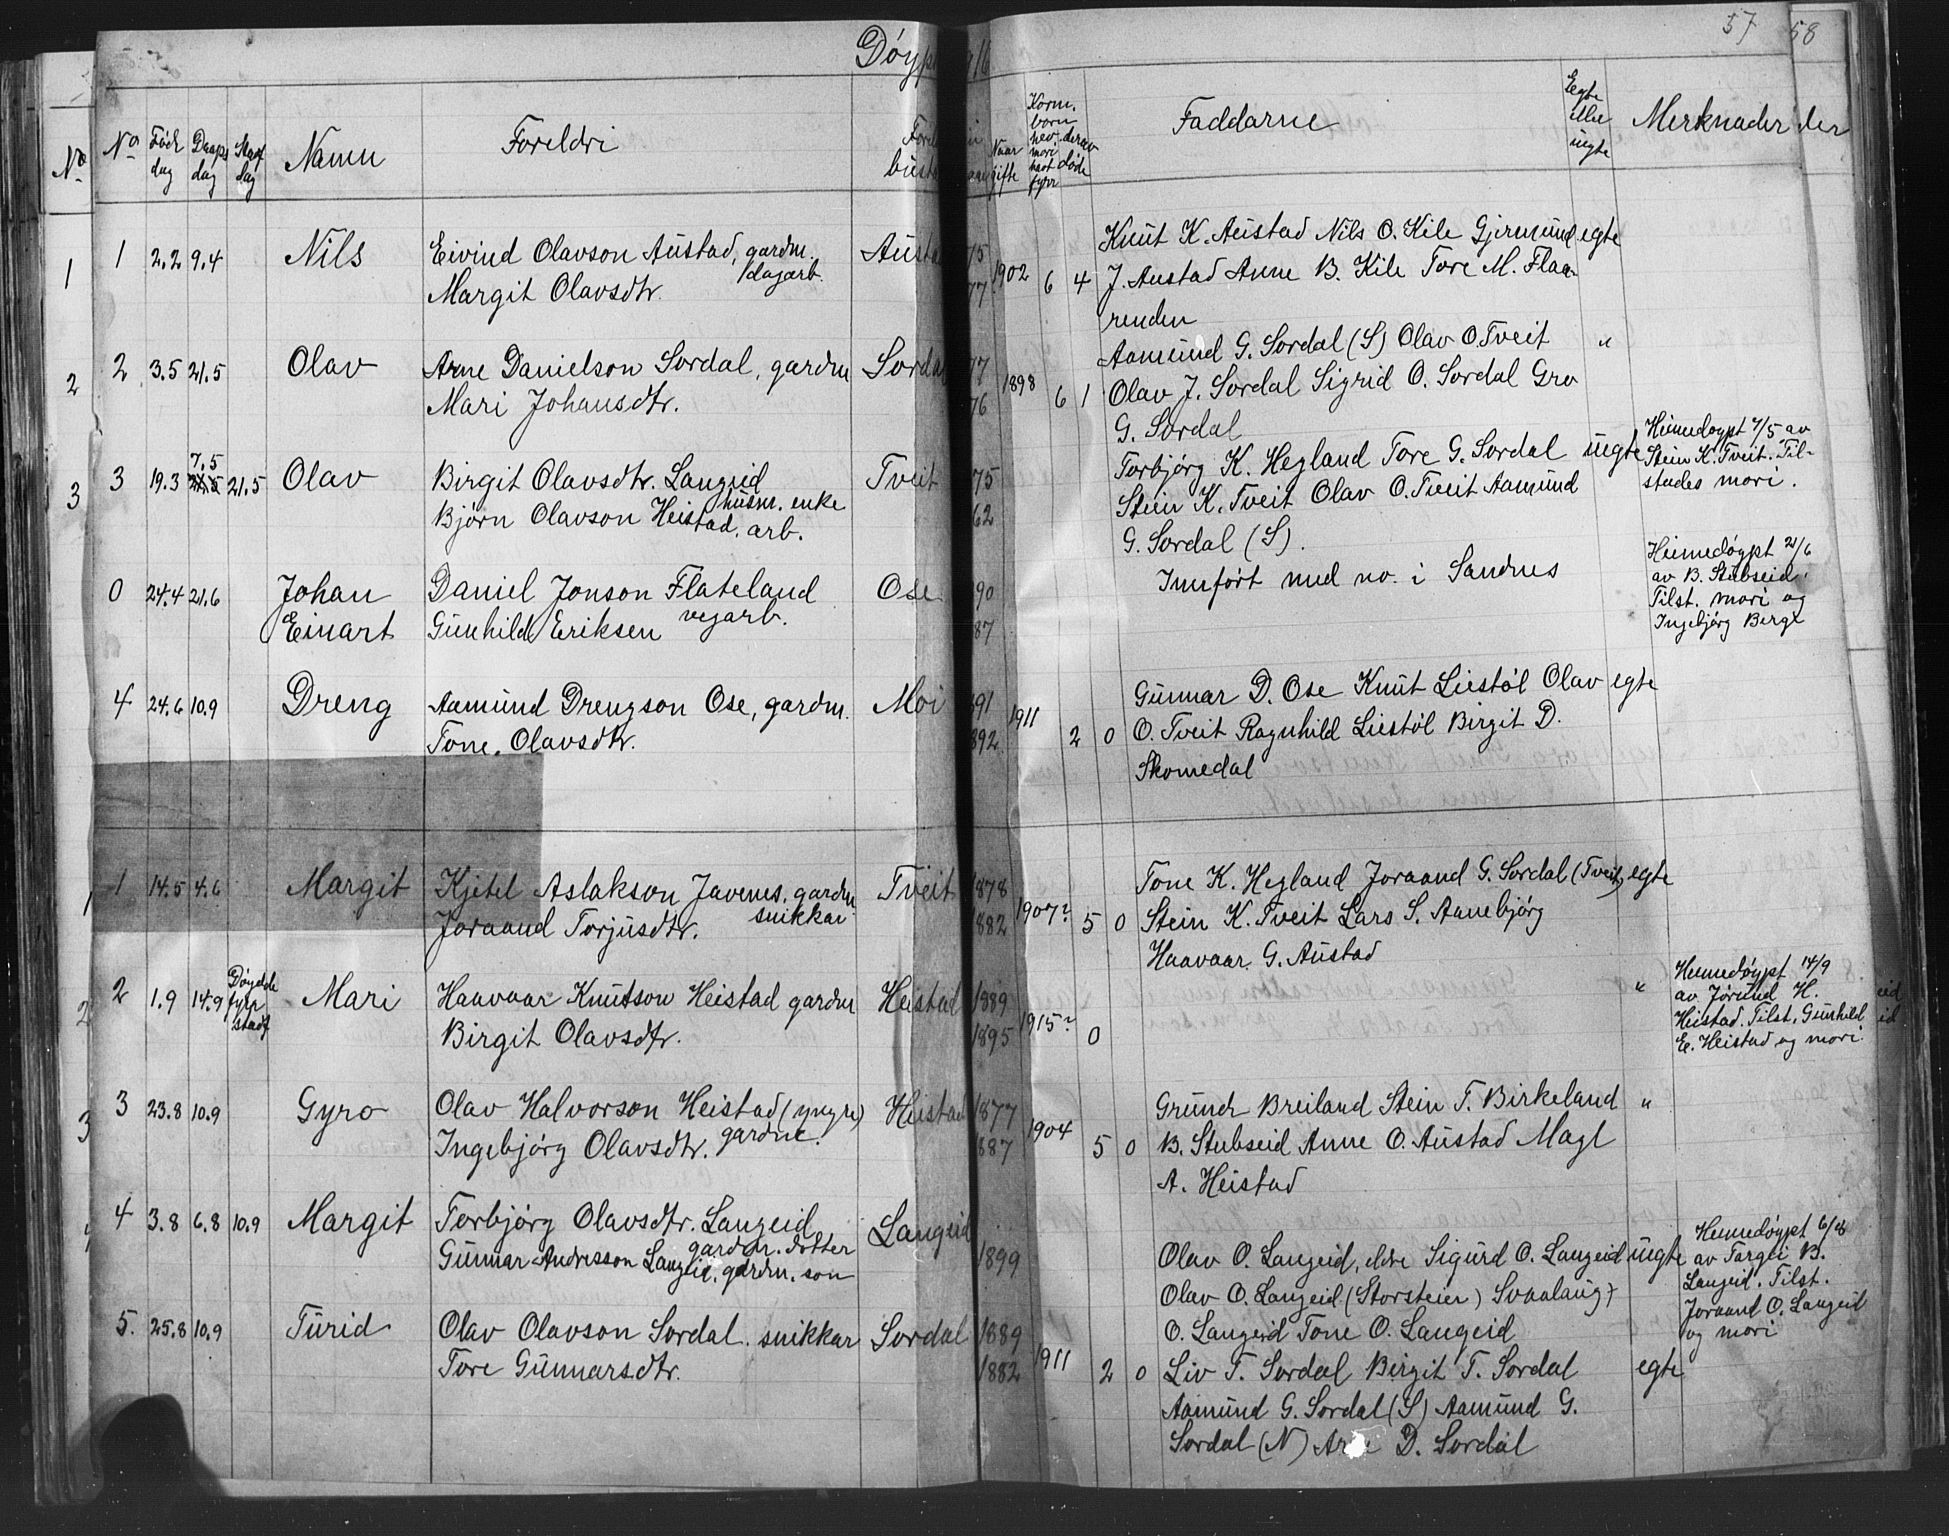 57 58
Døyp 16
No
No Fødr dag Daaps dag Stadf dag Namn Foreldri
Naar gifte Korm. born hev mori havt fyrr derav døde Faddarne Egte elle uegte Merknader
1 1 2.2 9.4 Nils Eivind Olavson Austad, gardm. Austa 75 1902 6 4 Knut K. Austad Nils O. Kile Gjermund egte
dagarb.
Margit Olavsdtr. 77 J. Austad Anne B. Kile Tore M. Flaa-
renden
2 2 3.5 21.5 Olav Arne Danielson Sordal, gardm Sordal 77 1898 6 1 Aamund G. Sordal (S) Olav O. Tveit "
Mari Johansdtr. 76 Olav J. Sordal Sigrid O. Sordal Gro
G. Sordal
3 3 19.3 7.5 21.5 Olav Birgit Olavsdtr. Langeid Tveit 75 Torbjørg K. Hegland Tore G. Sordal uegte
husm. enke
Bjørn Olavson Heistad. arb. 62 Stein K. Tveit Olav O. Tveit Aamund
G. Sordal (S).
Heimedøypt 7/5 av
Stein K. Tveit. Til-
stades mori.
0 24.4 21.6 Johan Daniel Jonson Flateland Ose 90 Innført med no. i Sandnes
vegarb.
Einart Gunhild Eriksen 87
Heimedøypt 21/6
av B. Stubseid.
Tilst. mori og
Ingebjørg Berge
4 24.6 10.9 Dreng Aamund Drengson Ose, gardm. Moi 891 1911 2 0 Gunnar D. Ose Knut Liestøl Olav egte
Tone Olavsdtr. 892 O. Tveit Ragnhild Liestøl Birgit D.
Skomedal
1 1 14.5 4.6 Margit Kjetel Aslakson Javenes, gardm Tveit 1878 1907? 5 0 Tone K. Hegland Joraand G. Sordal (Tveit) egte
snikkar
Joraand Torjusdtr. 882 Stein K. Tveit Lars S. Aanebjørg
Haavaar G. Austad
2 2 1.9 14.9 Døydde fyrr stadf Mari Haavaar Knutson Heistad gardm Heistad 1889 1915? 0 "
Birgit Olavsdtr. 1895
Heimedøypt 14/9
av Jørund H.
Heistad. Tilst. Gunhild
E. Heistad og mori.
3 3 23.8 10.9 Gyro Olav Halvorson Heistad (yngre) Heistad 1877 1904 5 0 Breiland Stein T. Birkeland "
gardm.
Ingebjørg Olavsdtr. 887 B. Stubseid Anne O. Austad
A. Heistad
4 4 3.8 6.8 10.9 Margit Torbjørg Olavsdtr. Langeid Langeid
gardm. dotter
Gunnar Andresson Langeid, gardm. son 1899 Olav O. Langeid, eldre Sigurd O. Langeid uegte
Olav O. Langeid (Storsteien) Svaalaug
O. Langeid Tone O. Langeid
Heimedøypt 6/8
av Targei B.
Langeid. Tilst.
Joraand O. Langeid
og mori
5. 25.8 10.9 Turid Olav Olavson Sordal. snikkar Sordal 1889 1911 2 0 Liv T. Sordal Birgit T. Sordal egte
Tore Gunnarsdtr. 1882 Aamund G. Sordal (S) Aamund G.
Sordal (N) D. Sordal